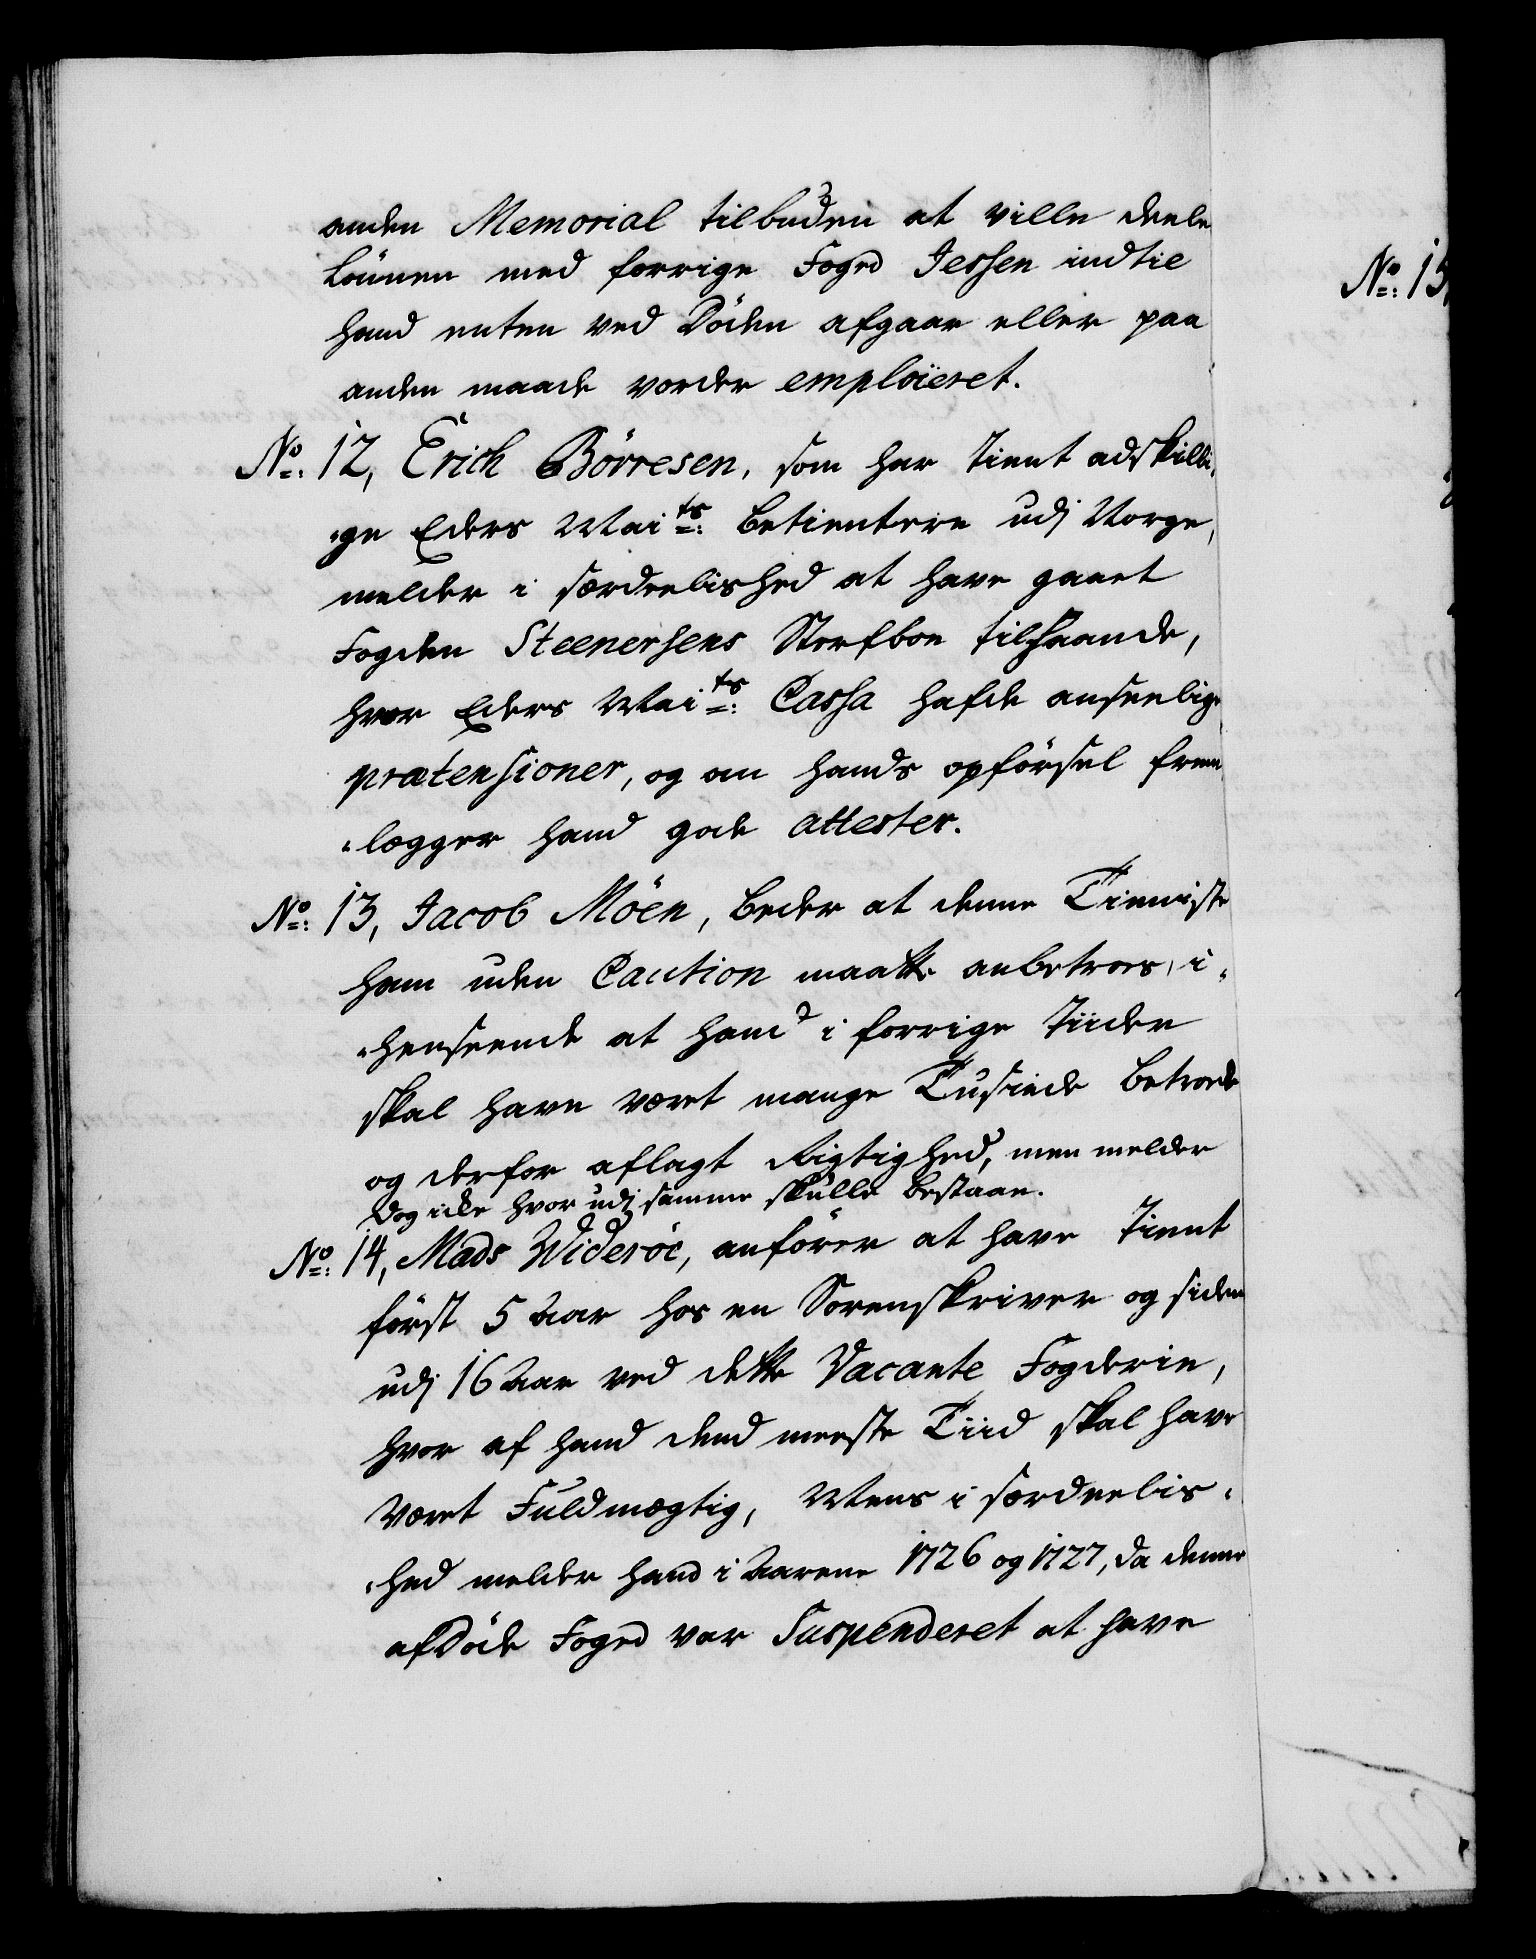 anden Memorial tilbuden at ville deele
Lönnen med forrige Foged Jessen indtil
hand enten ved Döden afgaar eller paa
anden maade vorder emploieret.
No: 12, Erich Börresen, som har tient adskilli,
„ge Eders Mai ts: betientere udj Norge,
melder i særdeelished at have gaaet
Fogden Steenersens Sterfboe tilhaande,
hvor Eders Mai ts: Cassa hafde anseelige
prætensioner, og om hands opförsel frem
„legger hand gode attester.
No: 13, Jacob Möen, beder at denne Tieniste
ham uden Caution maatte anbetroes, i„
„henseende at hand i forrige Tiider
skal have været mange Tusinde betroede
og derfor aflagt Rigtighed, men melder
dog icke hvor udj samme skulle bestaae.
No: 14, Mads Wideröe, anförer at have tient
först 5 Aar hos en Sorenskriver og siden
udj 16 Aar ved dette Vacante Fogderie,
hvor af hand dend meeste Tiid skal have
været Fuldmægtig, Mens i særdeelis„
„hed melder hand i Aarene 1726 og 1727, da denne
afdöde Foged var Suspenderet at have
No: 15,